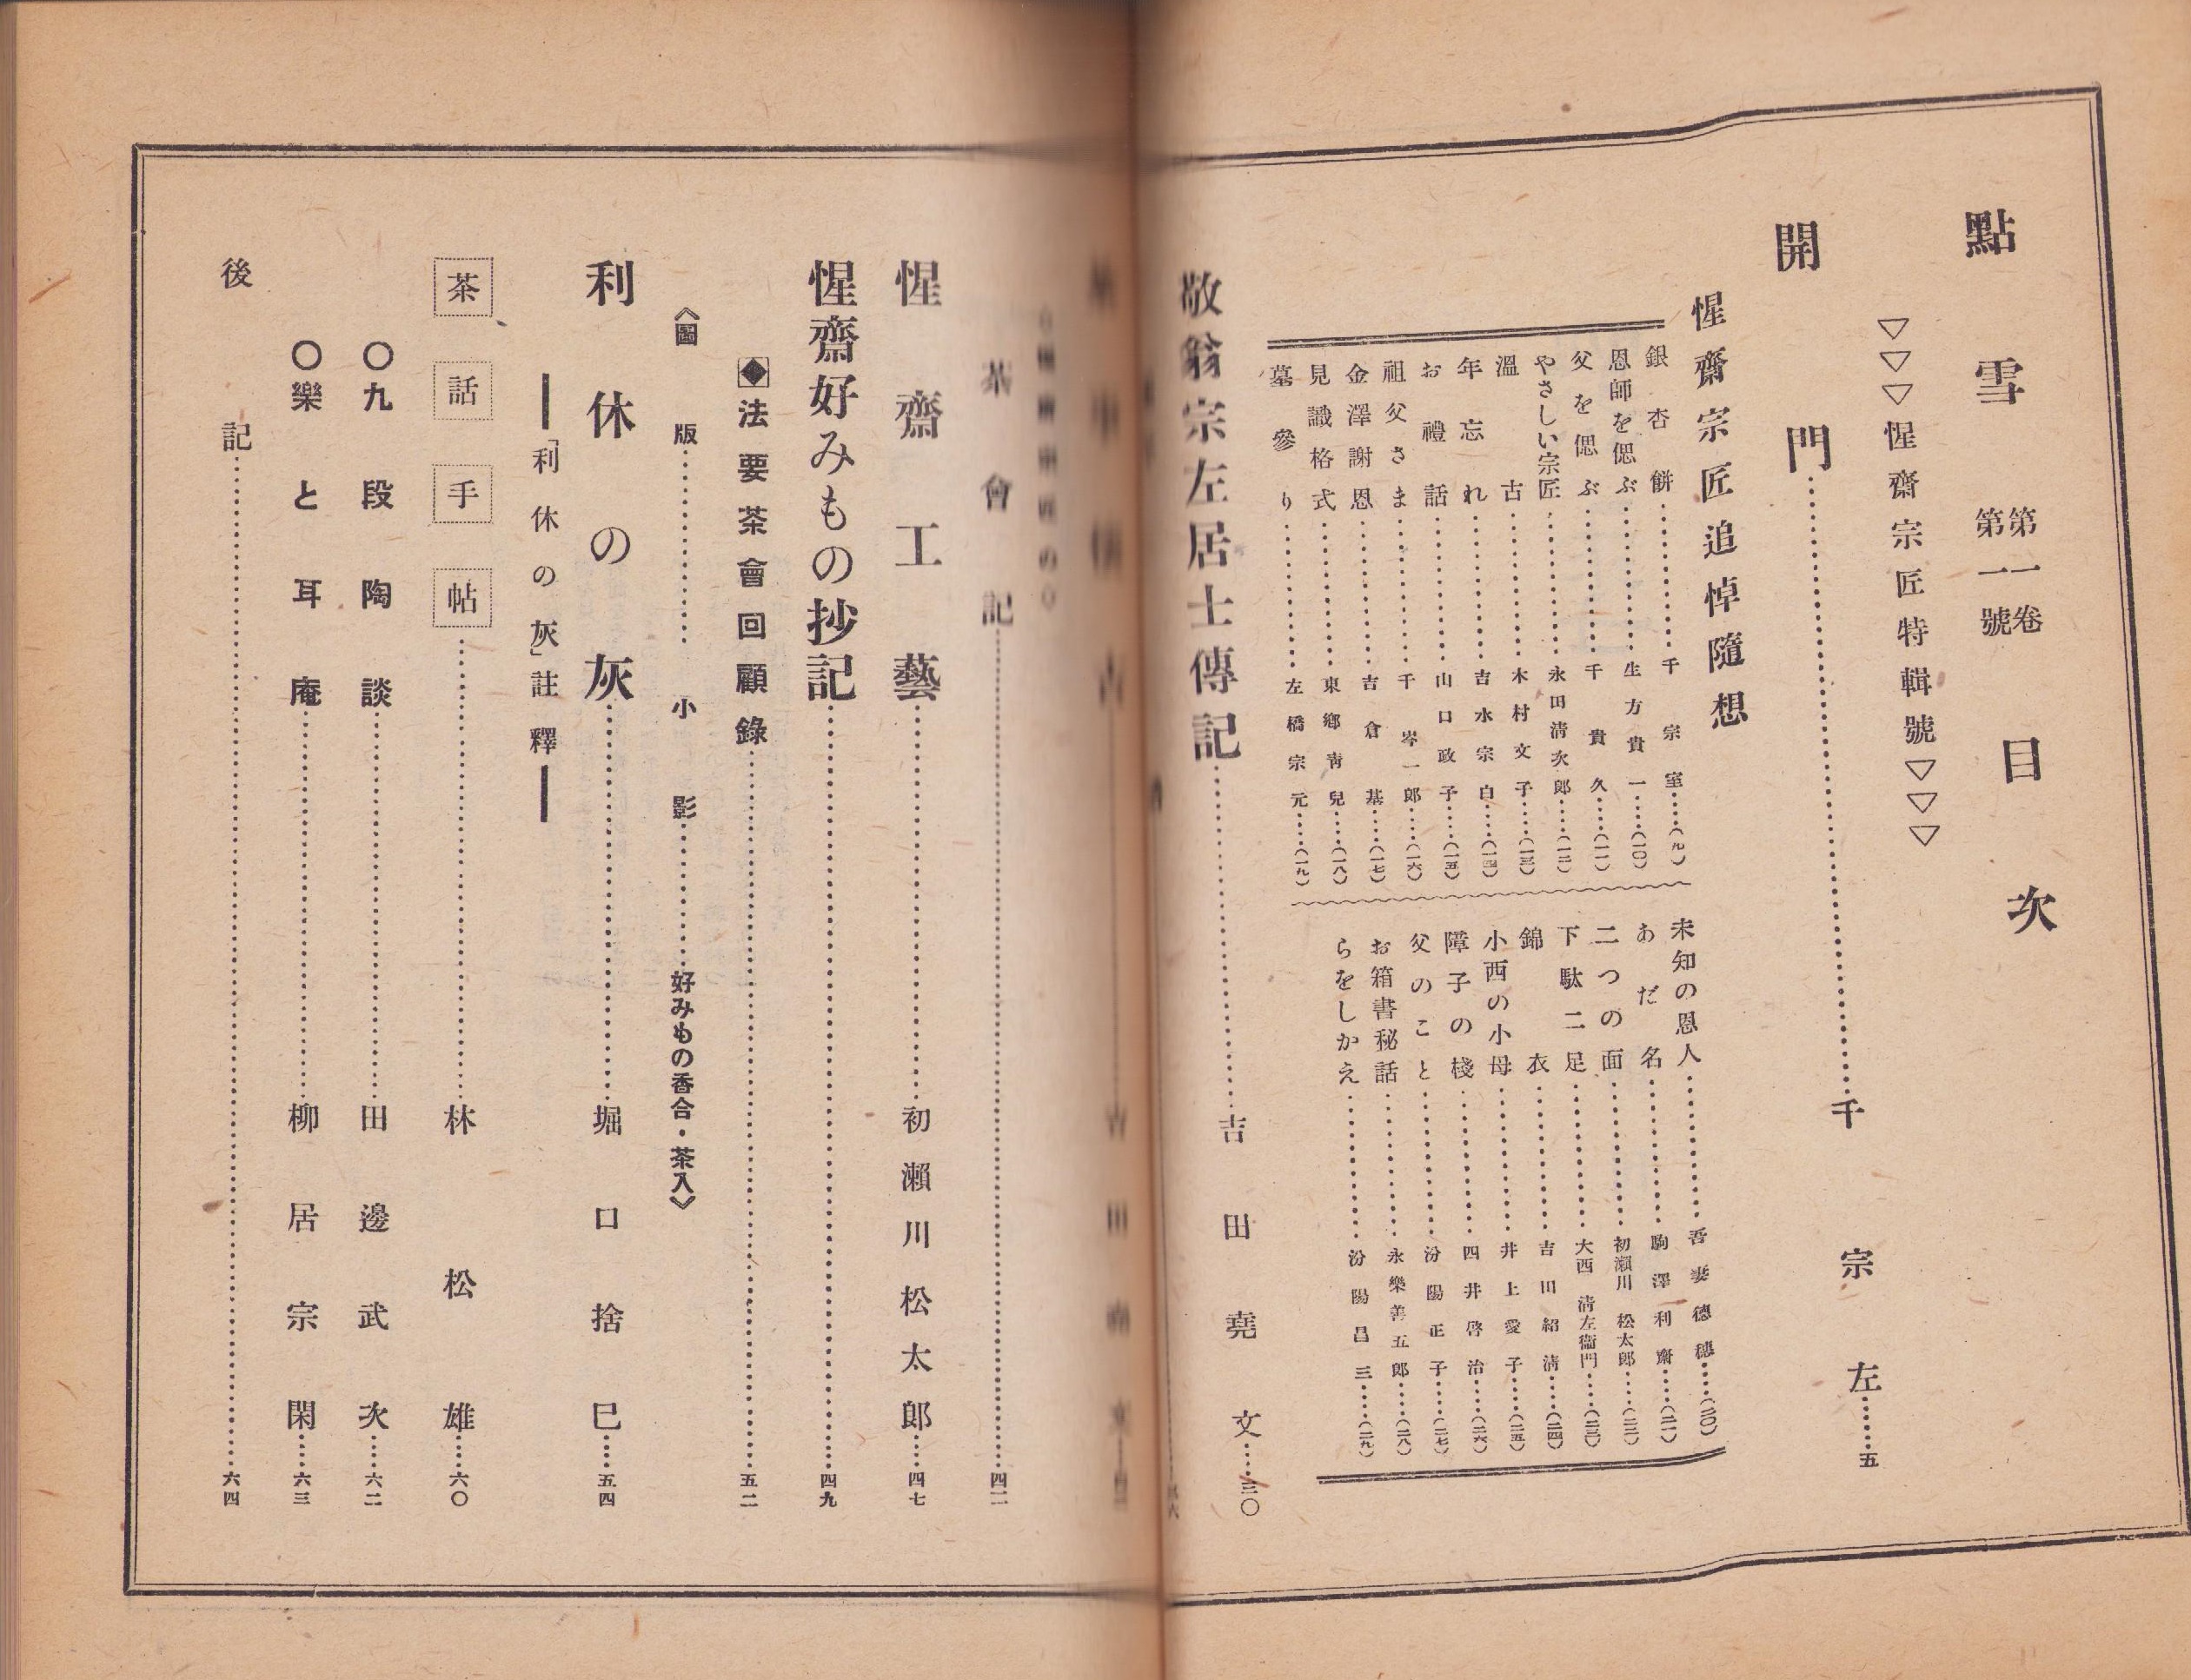 點雪目次
第一卷
第一號
▽▽▽惺齋宗匠特輯號▽▽▽
開門……千宗左……五
惺齋宗匠追悼隨想
銀杏餅……千宗室……(九)
恩師を偲ぶ……生方貴一……(一〇)
父を偲ぶ……千貴久……(一一)
やさしい宗匠……永田清次郎……(一二)
溫古……木村文子……(一三)
年忘れ……吉水宗白……(一四)
お禮話……山口政子……(一五)
祖父さま……千岑一郎……(一六)
金澤謝恩……吉倉基……(一七)
見識格式……東鄕靑兒……(一八)
墓參り……左橋宗元……(一九)
未知の恩人……吾妻德穗……(二〇)
あだ名……駒澤利齋……(二一)
二つの面……初瀨川松太郎……(二二)
下駄二足……大西清左衞門……(二三)
錦衣……吉田紹清……(二四)
小西の小母……井上愛子……(二五)
障子の棧……四井啓治……(二六)
父のこと……汾陽正子……(二七)
お箱書秘話……永樂善五郎……(二八)
らをしかえ……汾陽昌三……(二九)
敬翁宗左居士傳記……吉田堯文……三〇
茶會記……四二
惺齋工藝……初瀨川松太郎……四七
惺齋好みもの抄記……四九
◆法要茶會回顧錄……五二
《圖版……小影……好みもの香合・茶入》
利休の灰……堀口捨巳……五四
―「利休の灰」註釋―
茶話手帖……林松雄……六〇
〇九段陶談……田邊武次……六二
〇樂と耳庵……柳居宗閑……六三
後記……六四